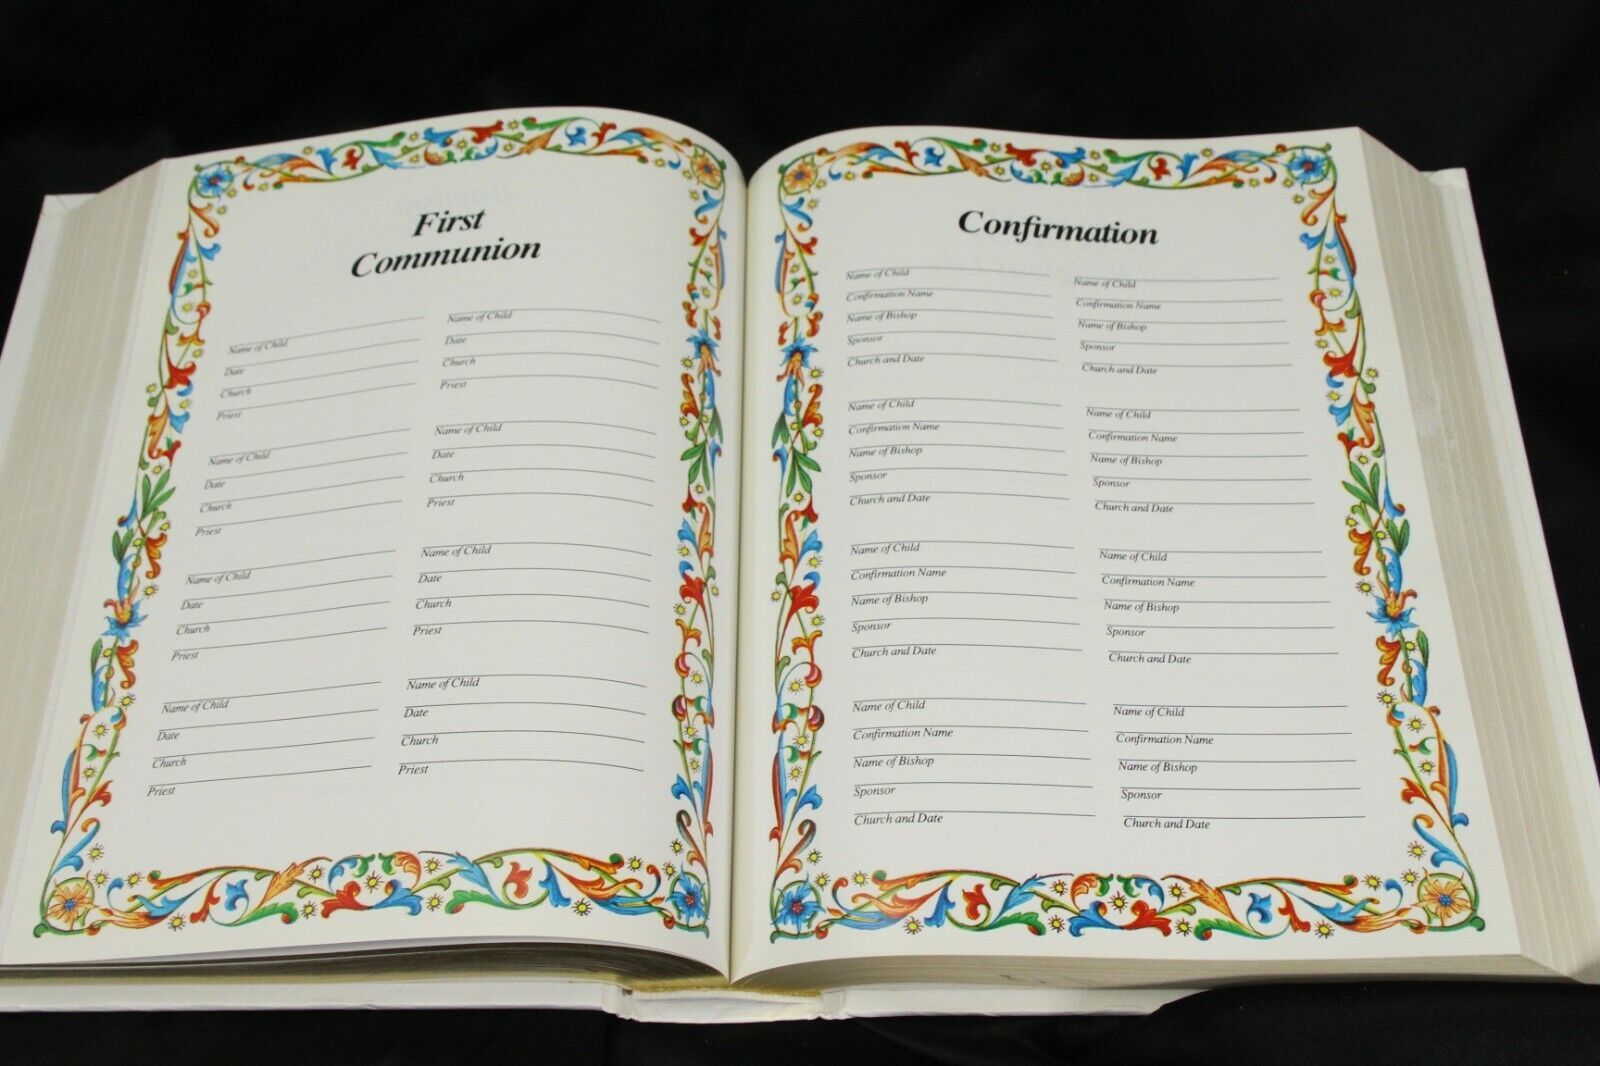 First
Communion
Name of Child
Date
Church
Priest
Name of Child
Date
Church
Priest
Name of Child
Date
Church
Priest
Name of Child
Date
Church
Priest
Name of Child
Date
Church
Priest
Name of Child
Date
Church
Priest
Name of Child
Date
Church
Priest
Name of Child
Date
Church
Priest
Confirmation
Name of Child
Confirmation Name
Name of Bishop
Sponsor
Church and Date
Name of Child
Confirmation Name
Name of Bishop
Sponsor
Church and Date
Name of Child
Confirmation Name
Name of Bishop
Sponsor
Church and Date
Name of Child
Confirmation Name
Name of Bishop
Sponsor
Church and Date
Name of Child
Confirmation Name
Name of Bishop
Sponsor
Church and Date
Name of Child
Confirmation Name
Name of Bishop
Sponsor
Church and Date
Name of Child
Confirmation Name
Name of Bishop
Sponsor
Church and Date
Name of Child
Confirmation Name
Name of Bishop
Sponsor
Church and Date